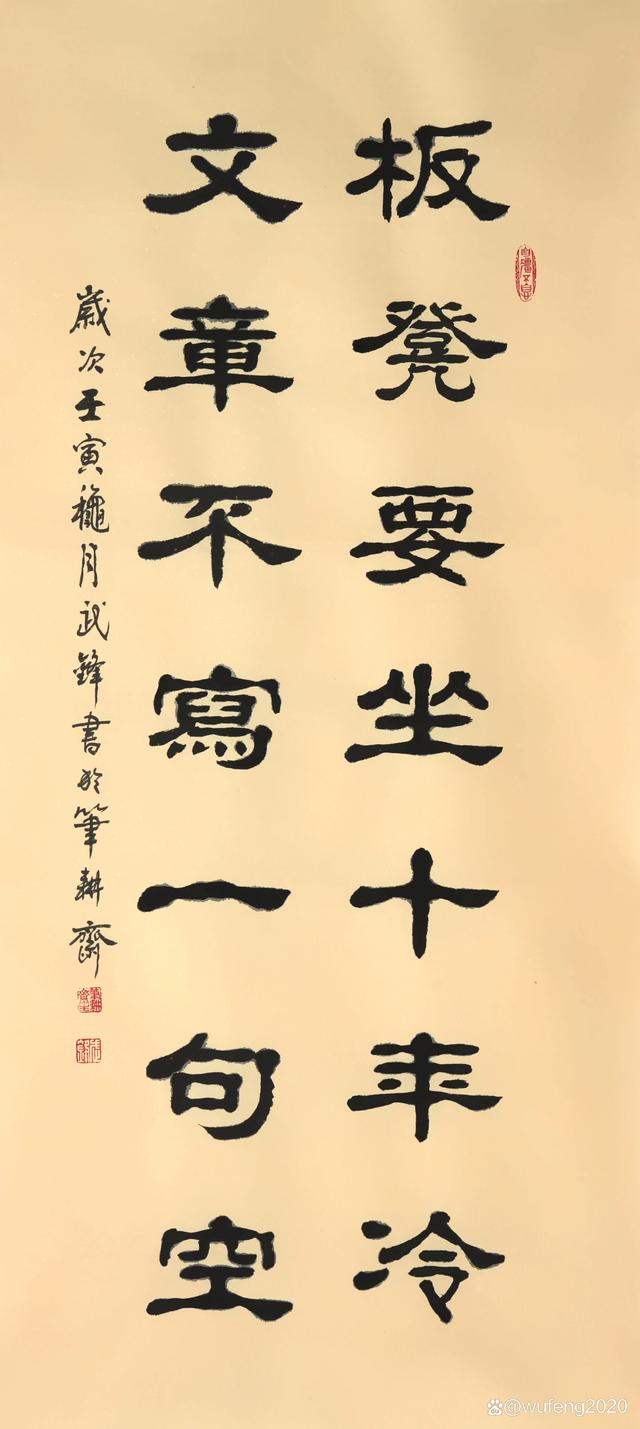 板凳要坐十年冷
文章不寫一句空
歲次壬寅龝月武鋒書於筆耕齋
@wufeng2020